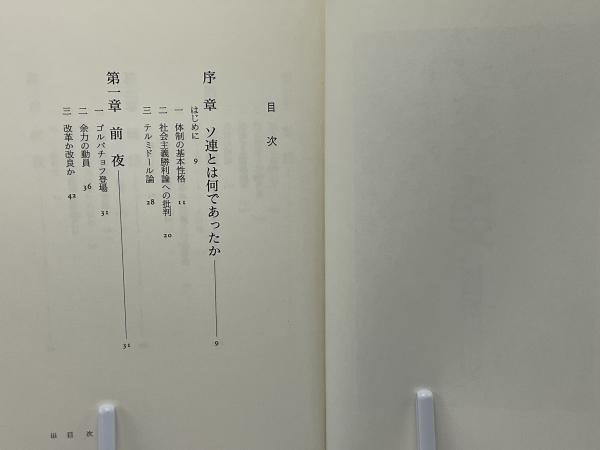 目次
序章 ソ連とは何であったか 9
はじめに 9
一 体制の基本性格 11
二 社会主義勝利論への批判 20
三 テルミドール論 28
第一章 前夜 31
一 ゴルバチョフ登場 31
二 余力の動員 36
三 改革か改良か 42
目次